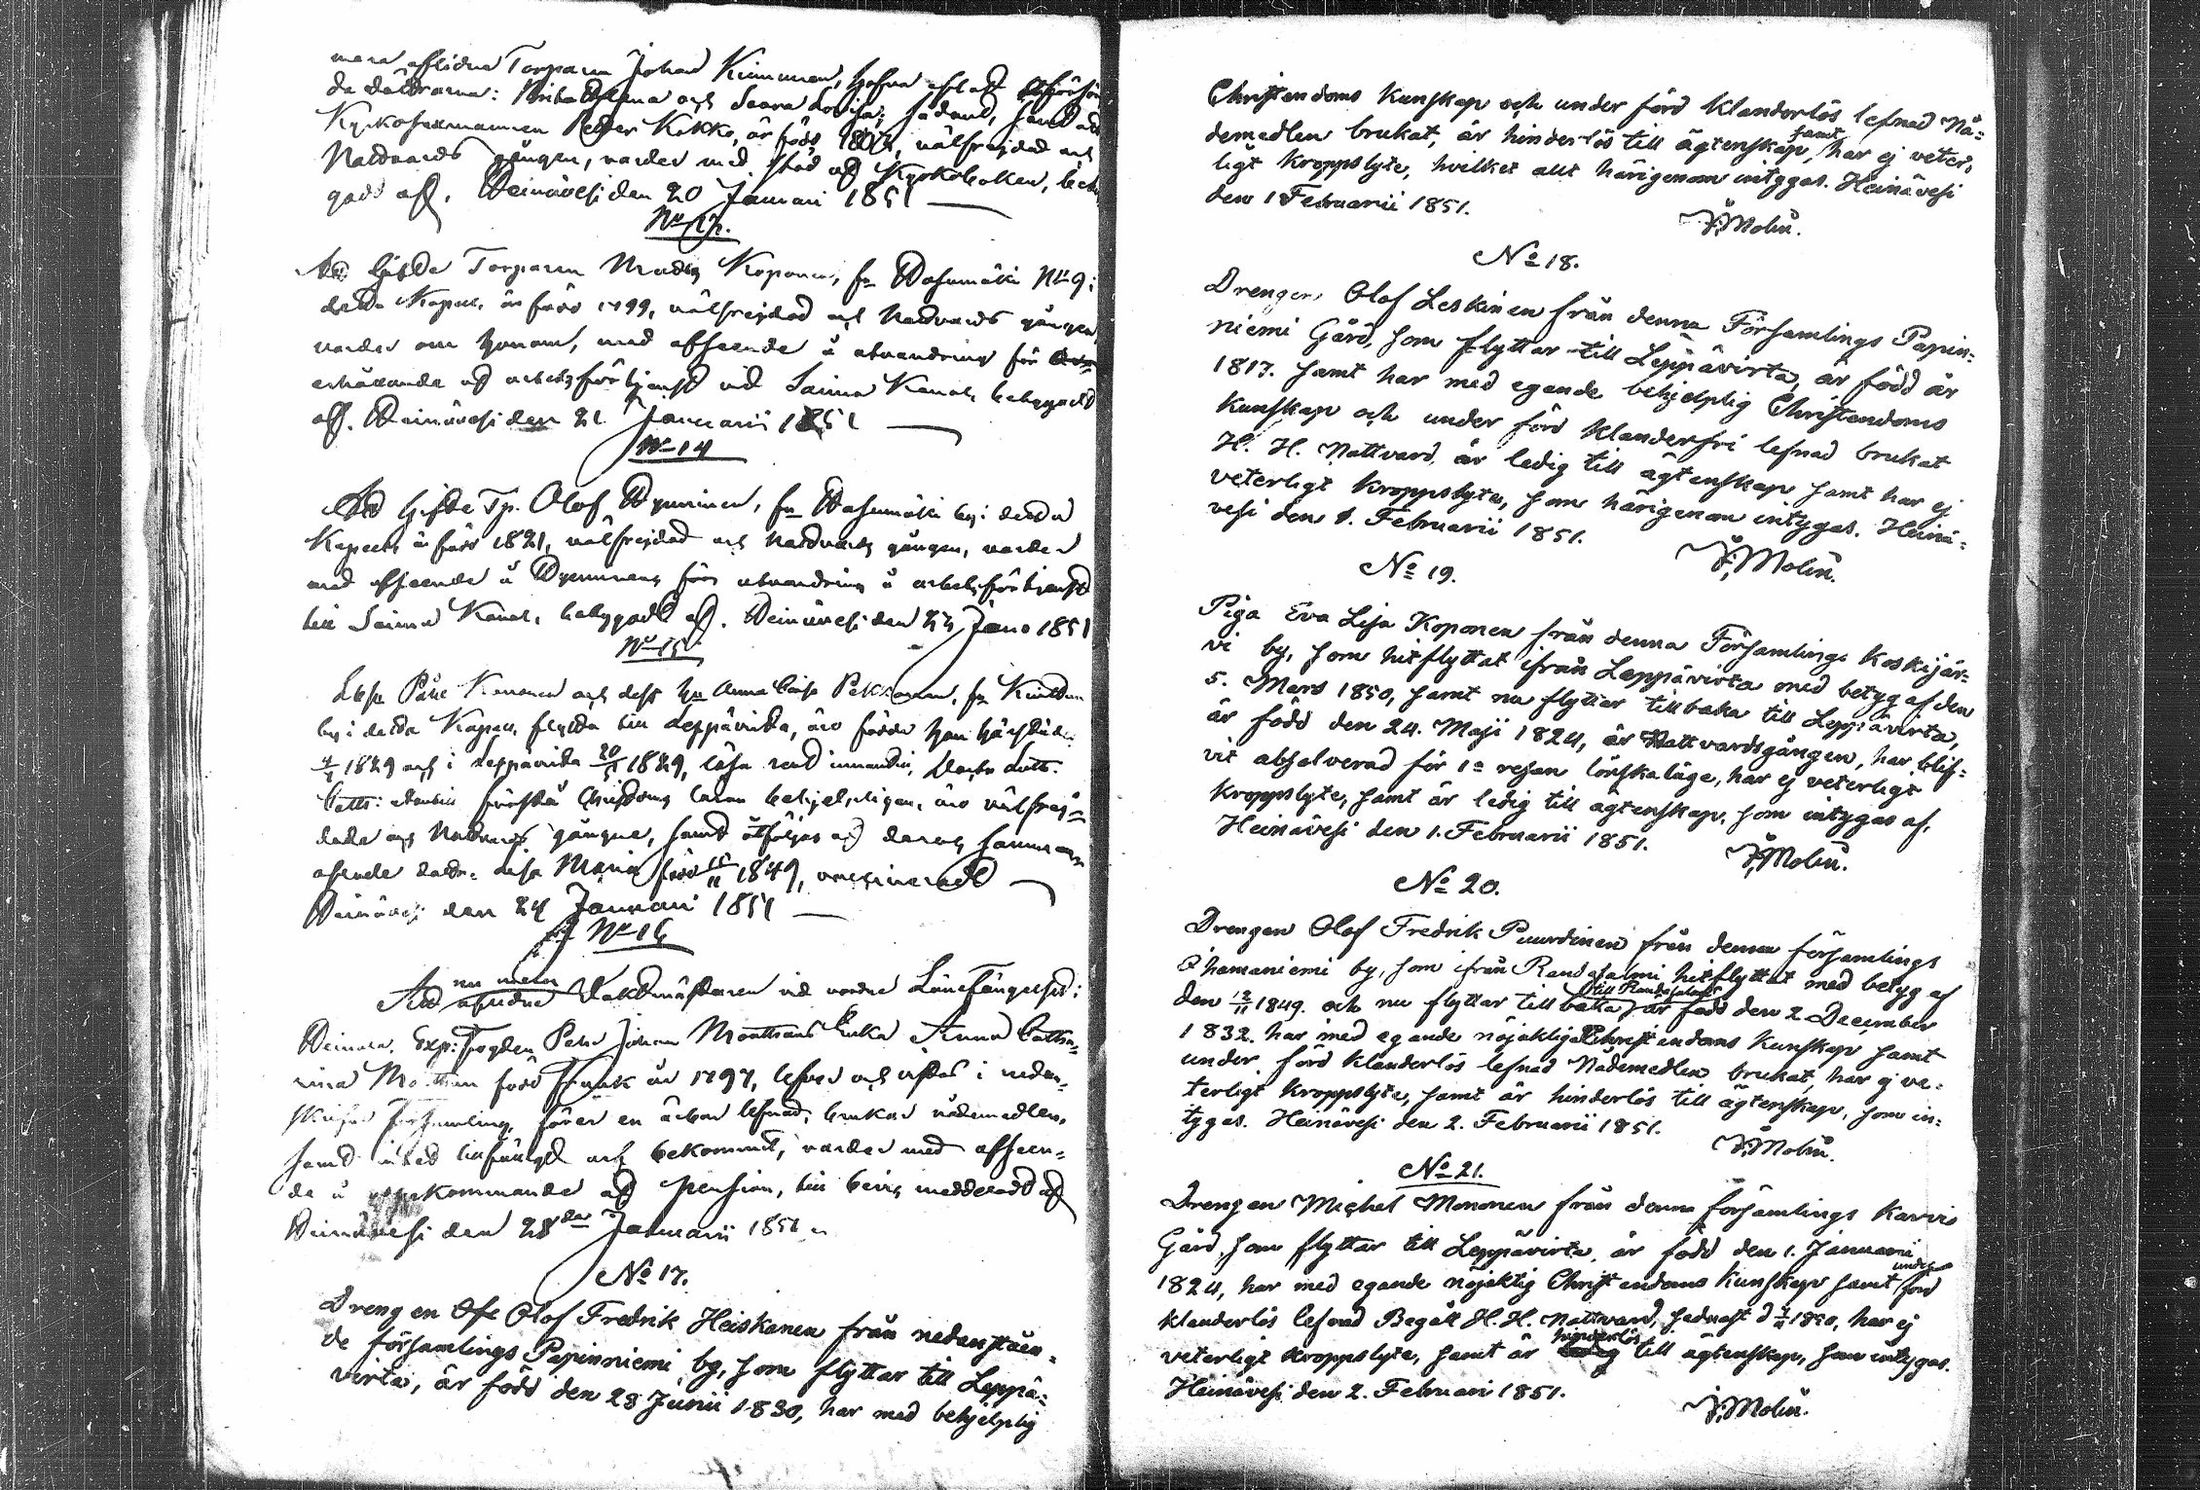 mera aflidne Torparen Johan Kinnunen, hafva efterl.
da döttrarna: Brita Helena och Saara Lovisa; sådant, samt att
Kyrkosexmannen Petter Kokko, är född 1802, välfrejdad och
Nattvards gången, varder med stöd af Kyrkoboken, bety
gadt af. Heinävesi den 20 Januari 1851
No 13.
Att Gifte Torparen Mats Koponen, fr. Wasumäki No 9:
detta Kapell, är född 1799, välfrejdad och Nattvards gången
varder om honom, med afseende å utvandring för
erhållande af arbetsförtjenst vid Saima Kanal, betygadt
af. Heinävesi den 21 Januarii 1851
No 14
Att Gifte Tp. Olof Hynninen, fr. Wasumäki by i detta
Kapell, är född 1821, välfrejdad och Nattvards gången, varder
med afseende å Hynninens förr utvandring å arbetsförtjenst
till Saima Kanal, betygadt af. Heinävesi den 22 Janu 1851
No 15
Lösk. Påhl Kononen och dess hu Anna Caisa Pekkarinen, fr.
by i detta Kapell, flytta till Leppävirta, äro födde han härstädes
1829 och i Leppävirta 1829, läsa rent innantill, Doctor Luth:
Cath: utantill förstå Christdoms läran behjelpligen, äro välfrej=
dade och Nattvards gångne, samt åtföljas af deras sammans
aflade dotter Maria född 1849,
Heinävesi den 24 Januari 1851
No 16
nu mera
Att afledne Vaktmästaren vid norra Länefängelset:
Johan Anna Catha=
rina född år 1797, lefver och vistas i nedan=
skrifne Församling, förer en ärbar lefnad, brukar nådemedlen,
samt intet
de å af pension, till bevis meddeladt af
Heinävesi den 28de Januarii 1851
No 17.
Drengen Olof Fredrik Heiskanen från nedanståen=
de församlings Papinniemi by, som flyttar till Leppä=
virta, är född den 23 Junii 1830, har med behjelplig
Christendoms Kunskap och under förd klanderlös lefnad Nå=
demedlen brukat, är hinderlös till ägtenskap, samt har ej veter=
ligt kroppslyte, hvilket allt härigenom intygas. Heinävesi
den 1 Februarii 1851.
J. Molin.
No 18.
Drengen Olof Leskinen från denna Församlings Papin=
niemi Gård, som flyttar till Leppävirta, är född år
1817. samt har med egande behjelplig Christendoms
Kunskap och under förd klanderfri lefnad brukat
H. H. Nattvard, är ledig till ägtenskap samt har ej
veterligt kroppslyte, som härigenom intygas. Heinä=
vesi den 1. Februarii 1851.
J. Molin.
No 19.
Piga Eva Lisa Koponen från denna Församlings Koskijär=
vi by, som hitflyttat ifrån Leppävirta med betyg af den
5. Mars 1850, samt nu flyttar tillbaka till Leppävirta,
är född den 24. Maji 1824, är Nattvardsgången, har blif=
vit absolverad för 1a resan lönskaläge, har ej veterligt
kroppslyte, samt är ledig till ägtenskap, som intygas af,
Heinävesi den 1. Februarii 1851.
J. Molin.
No 20.
Drengen Olof Fredrik Puurdinen från denna församlings
Ihamaniemi by, som ifrån Randasalmi hitflyttat med betyg af
den 1849. och nu flyttar tillbaka till Randasalmi, är född den 2 December
1832. har med egande nöjaktiga Christendoms Kunskap samt
under förd klanderlös lefnad Nådemedlen brukat, har ej ve=
terligt kroppslyte, samt är hinderlös till ägtenskap, som in=
tygas. Heinävesi den 2. Februarii 1851.
J. Molin.
No 21.
Drengen Michel Mononen från denna församlings Karvio
Gård, som flyttar till Leppävirta, är född den 1. Januarii
1824, har med egande nöjaktig Christendoms Kunskap samt under förd
klanderlös lefnad Begått H. H. Nattvard, sednast d 1850, har ej
veterligt kroppslyte, samt är hinderlös till ägtenskap, som intygas.
Heinävesi den 2. Februari 1851.
J. Molin.